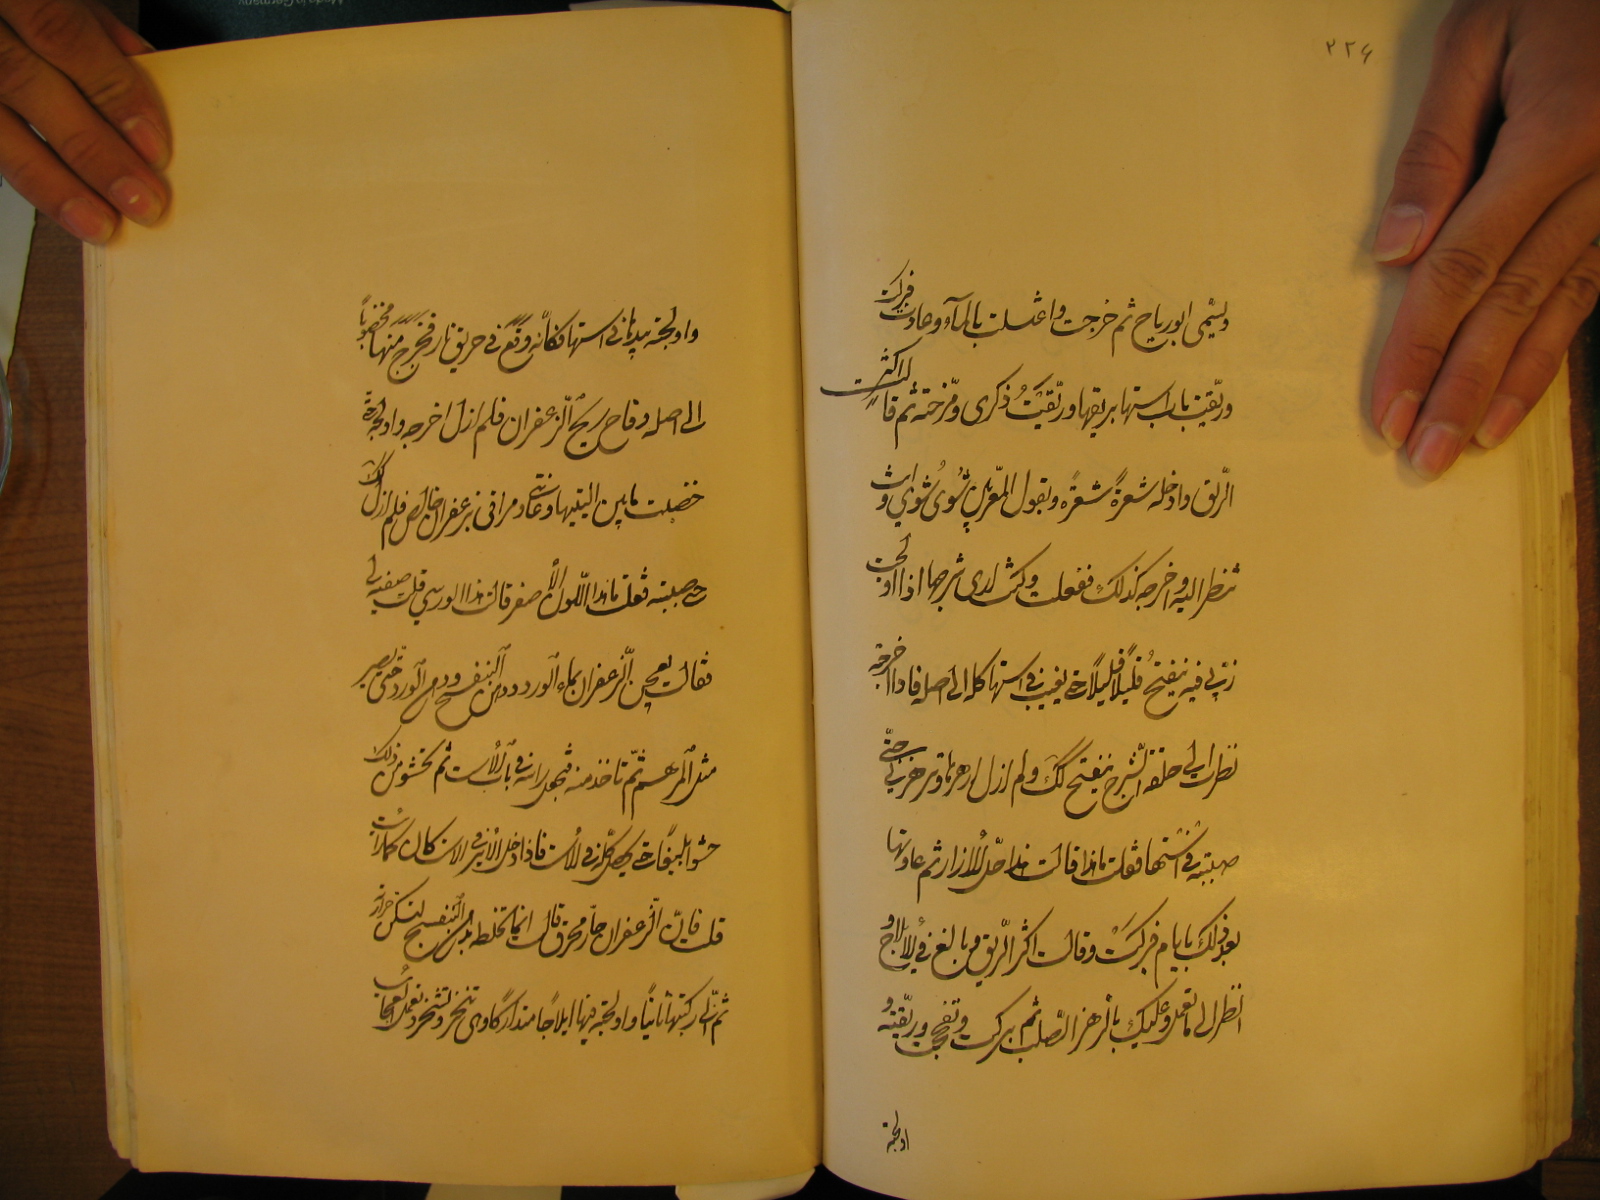 ٢٢۶
ويسمّى ابو رياح ثم خرجت واغتسلت بالمآء وعادت فبركت
وريّقت باب استها بريقها وريّقيتُ ذكرى ومزحته ثم قالت اكثر
الرّيق وادخله شعرةً شعرةً ويقول المغربل شوى شوى وانت
تنظر اليه واخرجه كذلك ففعلت وكنت ارى شرجها اذا اولجت
زبّي فيه ينفتح قليلًا قليلًا حتى يغيب في استها كله الى اصله فاذا اخرجته
نظرت الى حلقة الشرج ينفتح لك ولم ازل ارهزها وترهزني حتّى
صببته في استها فقلت ما هذا قالت هذا حلّ الازار ثم عاودتها
بعد ذلك بايام فبركت وقالت اكثر الريق وبالغ في الايلاج و
انظر الى ما تعمل وعليك بالرهز الصّلب ثم بركت وتفحجت وريّقته و
اولجته
واولجته بيدها في استها فكانّه وقع في حريق نار فخرج منها مخضوباً
الى اصله وفاح ريح الزعفران فلم ازل اخرجه واولجه وقد
خضلت ما بين اليتيها وعانتي ومراقى بزعفران خالص فلم ازل كذلك
حتى صببته فقلت ما هذا اللون الأصفر قالت هذا الورسي قلت صفيه لي
فقالت يعجن الزعفران بماء الورد ودهن البنفسج ودهن الورد حتّى يصير
مثل المرهم ثمّ تاخذ منه فيجعل راسه في باب الاست ثم تحشو من ذلك
حشوا بليغا حتى يصير كله في الاست فاذا دخل الاير في الاست كان كما رايت
قلت فانّ الزعفران حارّ محرق قالت انما تخلطه بدهن البنفسج ليسكن حرارته
ثم انى ركبتها ثانيًا واولجته فيها ايلاجا متداركا وهى تنخر وتشخر وتعمل العجائب